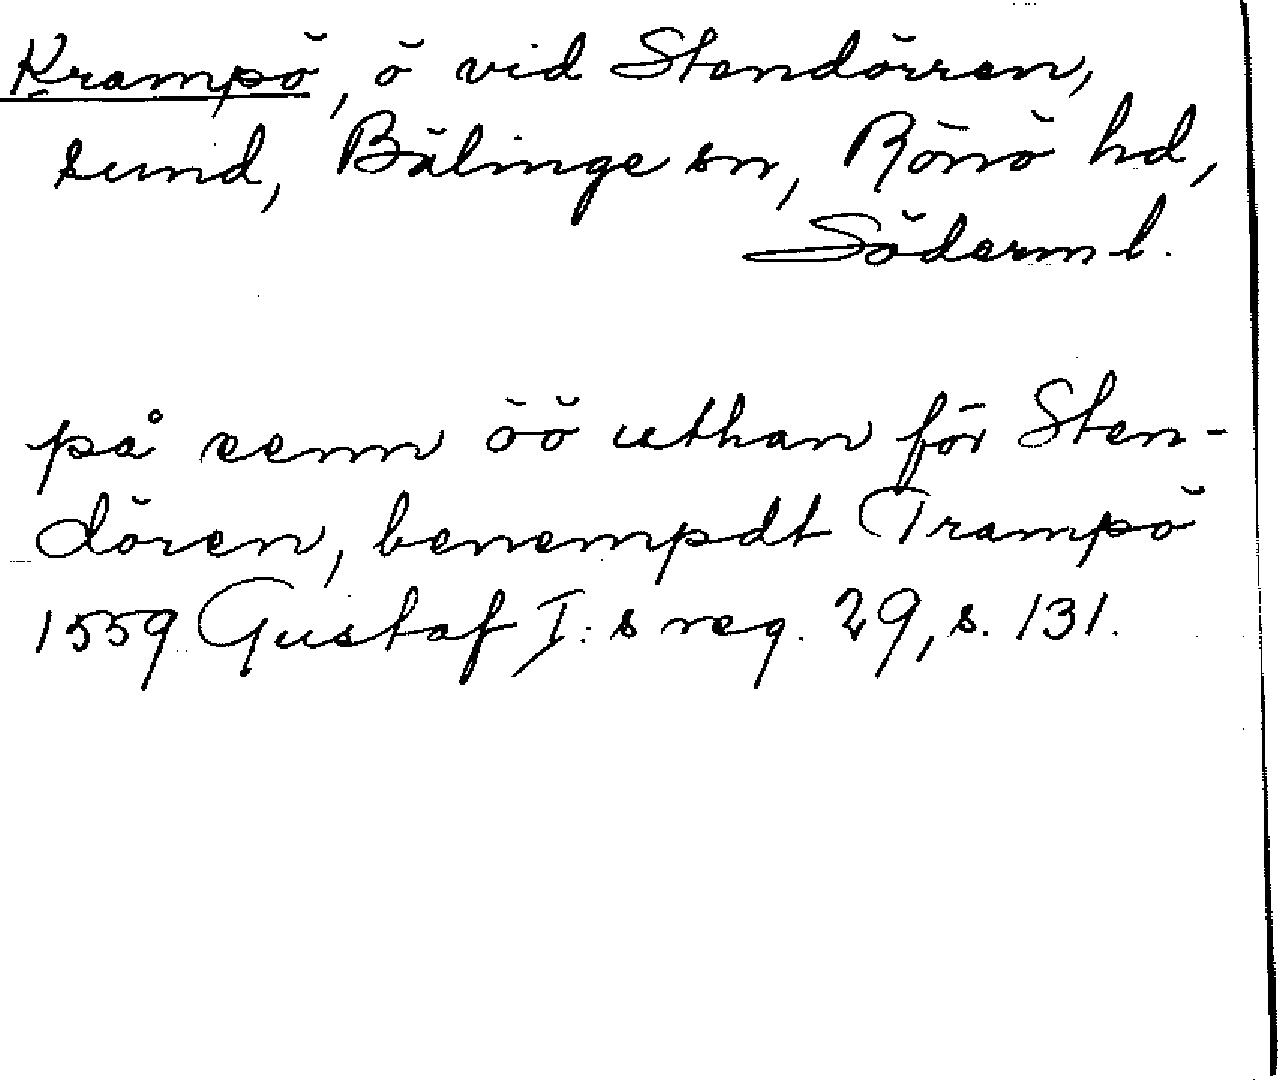 Krampö, ö vid Stendörren,
sund, Bälinge sn, Rönö hd,
Söderml.
på eenn öö uthan för Sten-
dören, benempdt Trampö
1559 Gustaf I:s reg. 29, s. 131.